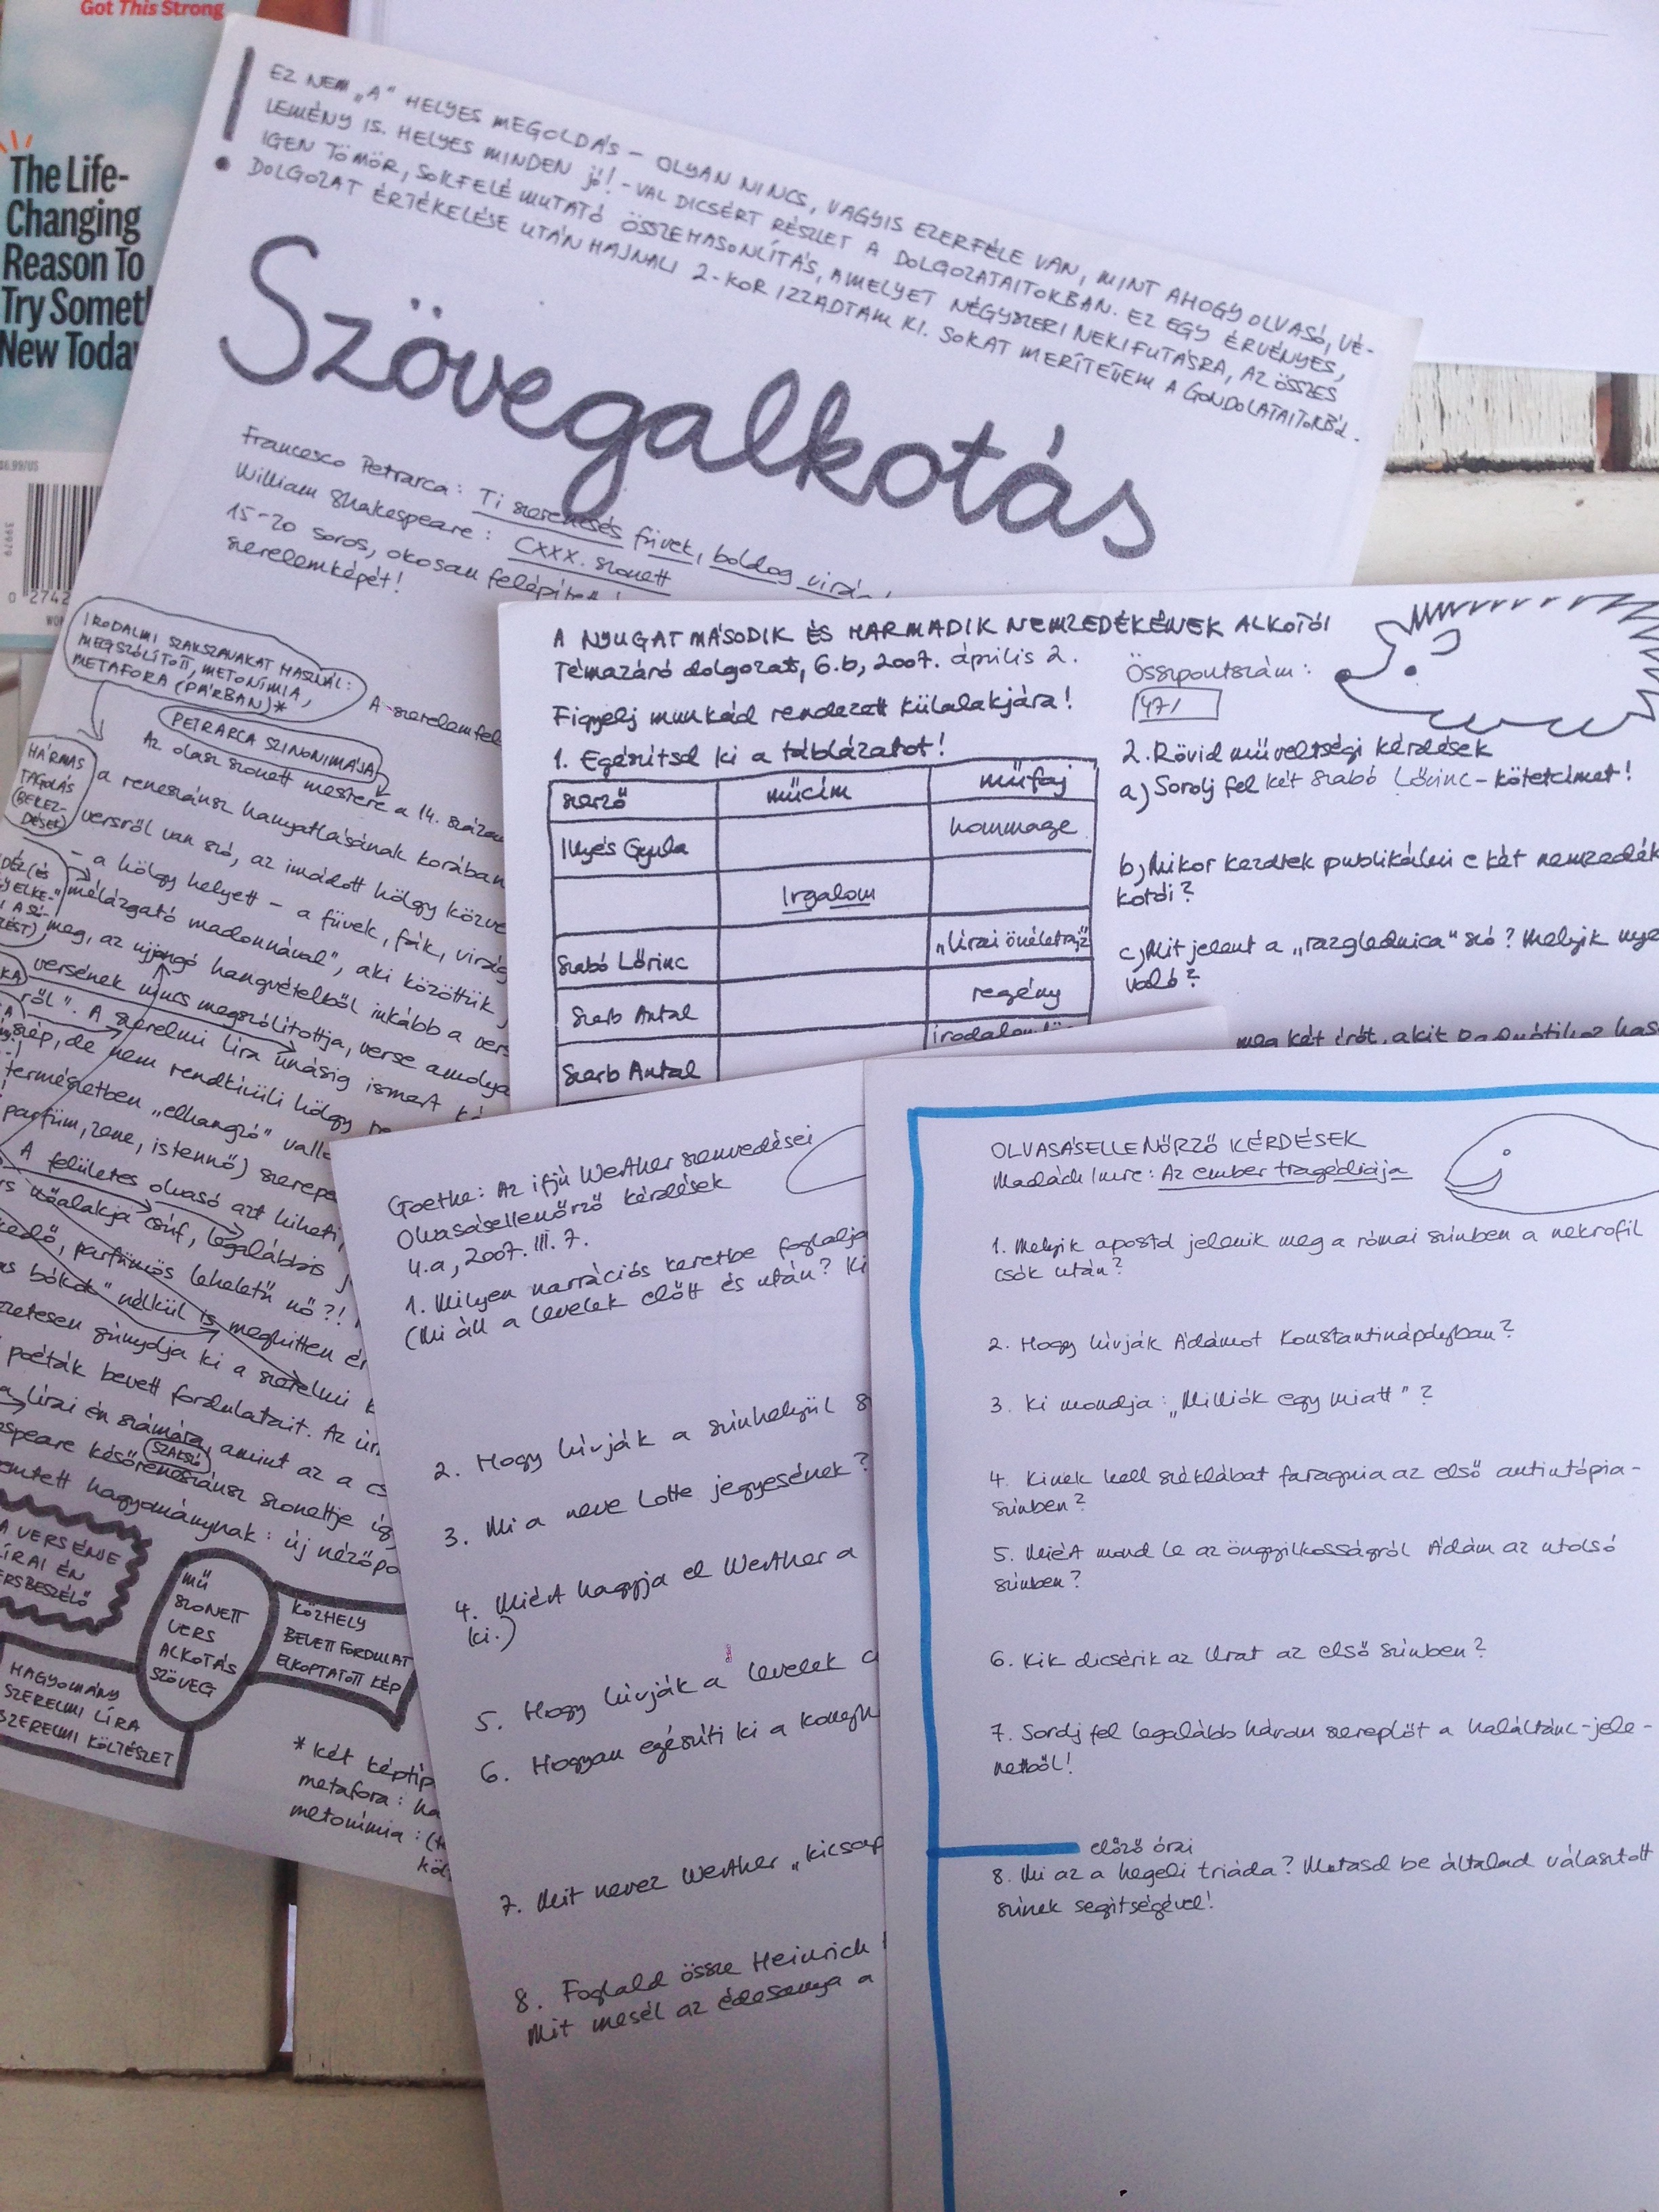 Got This Strong
The Life-
Changing
Reason To
Try Somet
New Today
$6.99/US
39979
0 2742
EZ NEM „A“ HELYES MEGOLDÁS – OLYAN NINCS, VAGYIS EZERFÉLE VAN, MINT AHOGY OLVASÓ, VÉ-
LEMÉNY IS. HELYES MINDEN jó! -VAL DICSÉRT RÉSZLET A DOLGOZATAITOKBAN. EZ EGY ÉRVÉNYES,
IGEN TÖMÖR, SOKFELÉ MUTATÓ ÖSSZEHASONLÍTÁS, AMELYET NÉGYSZERI NEKIFUTÁSRA, AZ ÖSSZES
DOLGOZAT ÉRTÉKELÉSE UTÁN HAJNALI 2-KOR IZZADTAM KI. SOKAT MERÍTETTEM A GONDOLATAITOKBÓL.
Szövegalkotás
Francesco Petrarca: Ti szerencsés füvek, boldog virá
William Shakespeare: CXXX. szonett
15-20 soros, okosan felépített
szerelemképét!
IRODALMI SZAKSZAVAKAT HASZNÁL:
MEGSZÓLÍTOTT, METONÍMIA,
METAFORA (PÁRBAN)*
A szerelemfel
PETRARCA SZINONIMÁJA
Az olasz szonett mestere a 14. száza
HÁRMAS
TAGOLÁS
(BEKEZ-
DÉSEK)
a reneszánsz hanyatlásának korában
versről van szó, az imádott hölgy közve
– a hölgy helyett – a füvek, fák, virág
mélázgató madonnával“, aki közöttük
meg, az ujjongó hangvételből inkább a vers
versének nincs megszólítottja, verse amolya
ről“. A szerelmi líra unásig ismert ké
szép, de nem rendkívüli hölgy
természetben „elhangzó“ vallo
parfüm, zene, istennő) szerepe
A felületes olvasó azt hiheti,
nőalakja csúf, legalábbis
parfümös leheletű nő?!
bókok“ nélkül is meghitten ér
gúnyolja ki a szerelmi
poéták bevett fordulatait. Az
lírai én számára, amint az a cs
SZAKSZÓ
speare későreneszánsz szonettje
emtett hagyománynak: új nézőpo
A VERS ÉNJE
LÍRAI ÉN
VERSBESZÉLŐ
MŰ
SZONETT
VERS
ALKOTÁS
SZÖVEG
KÖZHELY
BEVETT FORDULAT
ELKOPTATOTT KÉP
HAGYOMÁNY
SZERELMI LÍRA
SZERELMI KÖLTÉSZET
* két képtíp
metafora: ha
metonímia: (t
köl
A NYUGAT MÁSODIK ÉS HARMADIK NEMZEDÉKÉNEK ALKOTÓI
Témazáró dolgozat, 6.b, 2007. április 2.
Figyelj munkád rendezett külalakjára!
Összpontszám:
47/
1. Egészítsd ki a táblázatot!
szerző műcím műfaj
Illyés Gyula hommage
Irgalom
Szabó Lőrinc „lírai önéletrajz“
Szerb Antal regény
Szerb Antal
2. Rövid műveltségi kérdések
a) Sorolj fel két Szabó Lőrinc-kötetcímet!
b) Mikor kezdtek publikálni e két nemzedék
kotói?
c) Mit jelent a „razglednica“ szó? Melyik nye
való?
meg két írót, akit Radnótihoz has
Goethe: Az ifjú Werther szenvedései
Olvasásellenőrző kérdések
4.a, 2007. III. 7.
1. Milyen narrációs keretbe foglalja
(Mi áll a levelek előtt és után? Ki
2. Hogy hívják a színhelyül s
3. Mi a neve Lotte jegyesének?
4. Miért hagyja el Werther a
ki.)
5. Hogy hívják a levelek c
6. Hogyan egészíti ki a konyh
7. Mit nevez Werther „kicsap
8. Foglald össze Heinrich
Mit mesél az édesanya a
OLVASÁSELLENŐRZŐ KÉRDÉSEK
Madách Imre: Az ember tragédiája
1. Melyik apostol jelenik meg a római színben a nekrofil
csók után?
2. Hogy hívják Ádámot Konstantinápolyban?
3. Ki mondja: „Milliók egy miatt“?
4. Kinek kell széklábat faragnia az első antiutópia-
színben?
5. Miért mond le az öngyilkosságról Ádám az utolsó
színben?
6. Kik dicsérik az Urat az első színben?
7. Sorolj fel legalább három szereplőt a haláltánc-jele-
netből!
előző órai
8. Mi az a hegeli triáda? Mutasd be általad választott
színek segítségével!